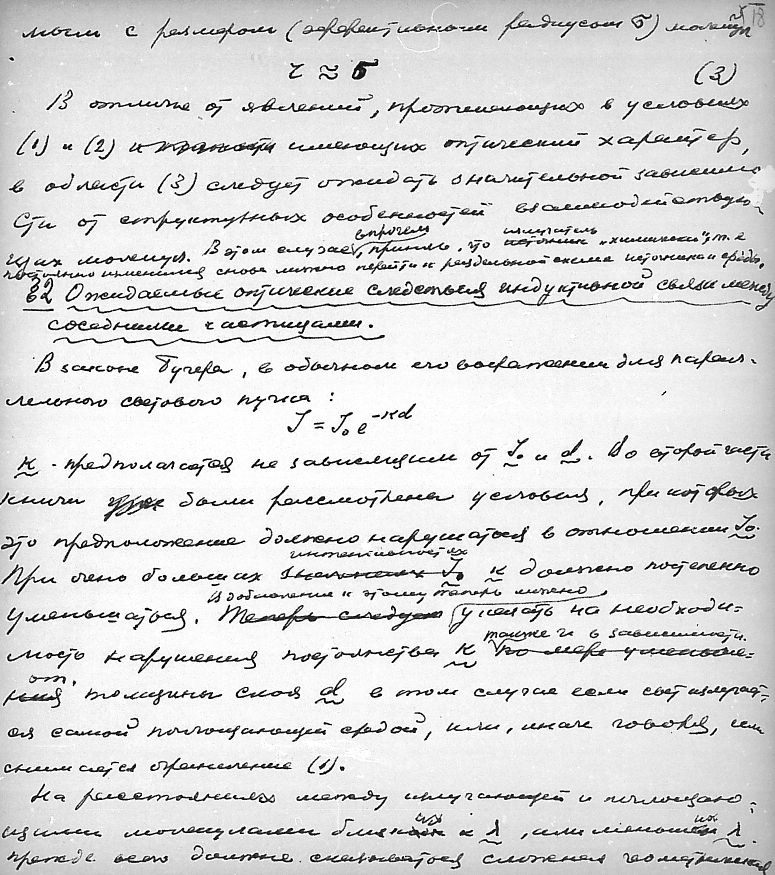 мым с размером (эффективным радиусом σ) молекул
18
r ≈ σ (3)
В отличие от явлений, протекающих в условиях
(1) и (2) и имеющих оптический характер,
в области (3) следует ожидать значительной зависимо
сти от структурных особенностей взаимодействую-
щих молекул. В этом случае, впрочем, приняв, что излучатель источник "химически", т.е.
постоянно изменился снова можно перейти к раздельной схеме источника и среды.
§2 Ожидаемые оптические следствия индуктивной связи между
соседними частицами.
В законе Бугера, в обычном его выражении для парал-
лельного светового пучка:
J = J₀ e^(-кd)
к - предполагается не зависящим от J₀ и d. Во второй части
книги были рассмотрены условия, при которых
это предположение должно нарушаться в отношении J₀.
интенсивностях
При очень больших значениях J₀ к должно постепенно
В добавление к этому теперь можно
уменьшаться. Теперь следует указать на необходи-
также и в зависимости
мость нарушения постоянства к по мере уменьше-
от
ния толщины слоя d в том случае если свет излучает-
ся самой поглощающей средой, или, иначе говоря, если
снимается ограничение (1).
На расстояниях между излучающей и поглощаю-
щими молекулами близких к λ, или меньших λ
прежде всего должна сказываться сложная геометрическая